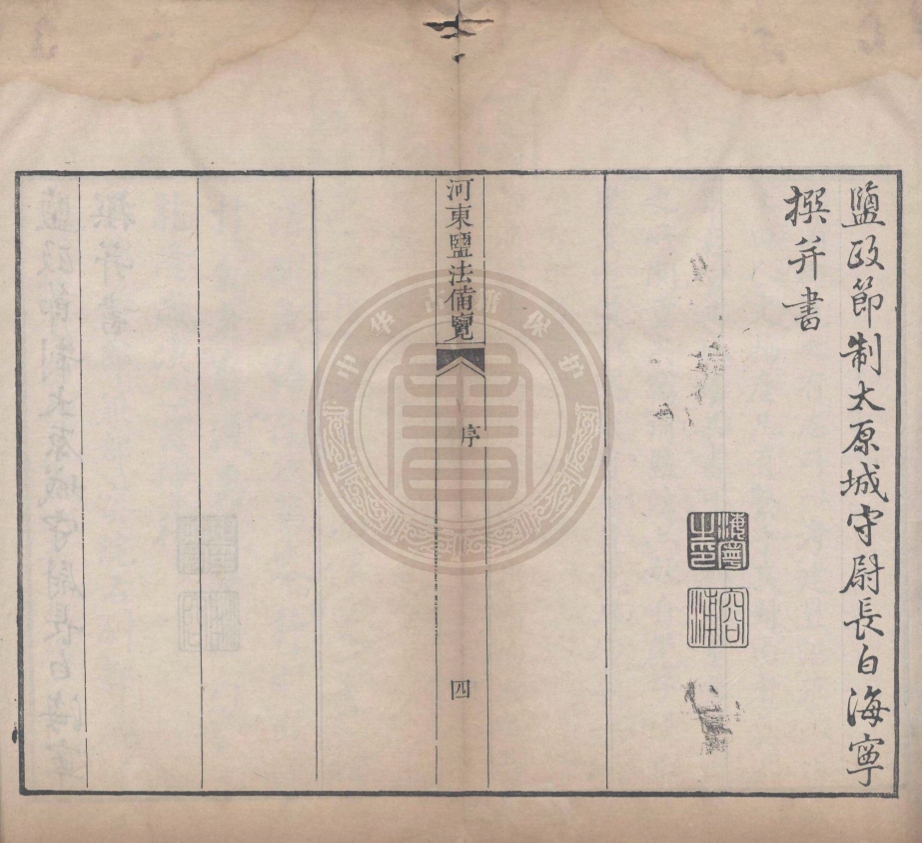 鹽政節制太原城守尉長白海寧
撰并書
海寧之印
容浦
河東鹽法備覽
序
四
中华古籍保护